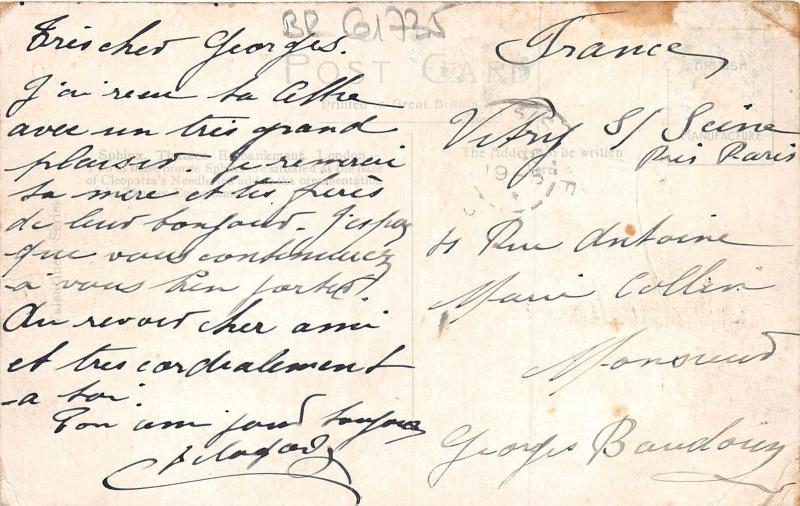 BR 61735
Tres cher Georges.
J'ai reçu ta lettre
avec un tres grand
plaisir je remerci
ta mere et tes freres
de leur bonjour. J'espere
que vous continuez
a vous bien porter.
Au revoir cher ami
et tres cordialement
a toi.
Ton ami pour toujours
France
Vitry S/ Seine
Pres Paris
Rue Antoine
Marie Collin
Monsieur
Georges Baudouin
POST CARD
Printed in Great Britain
Sphinx, Thames Embankment, London.
bronze Sphinx are situated at the base
of Cleopatra's Needle
The Address to be written
BRITISH
MANUFACTURE